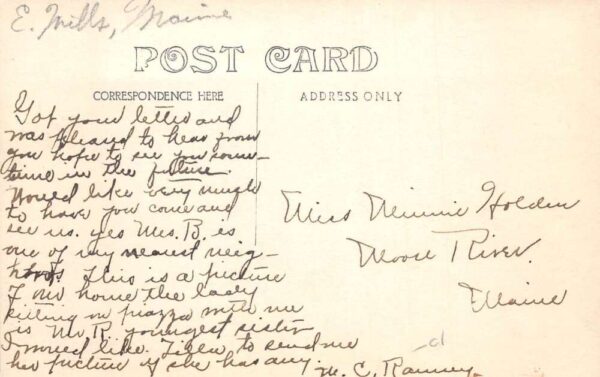 E. Mills, Maine
POST CARD
CORRESPONDENCE HERE
ADDRESS ONLY
Got your letter and
was pleased to hear from
you hope to see you some-
time in the future.
Would like very much
to have you come and
see us. yes Mrs. B. is
one of my nearest neig-
hbors. This is a picture
of our home the lady
sitting on piazza with me
is Mr. R. youngest sister
I would like to send me
her picture if she has any.
M. C. Ranney
Miss Minnie Holden
Moose River.
Maine